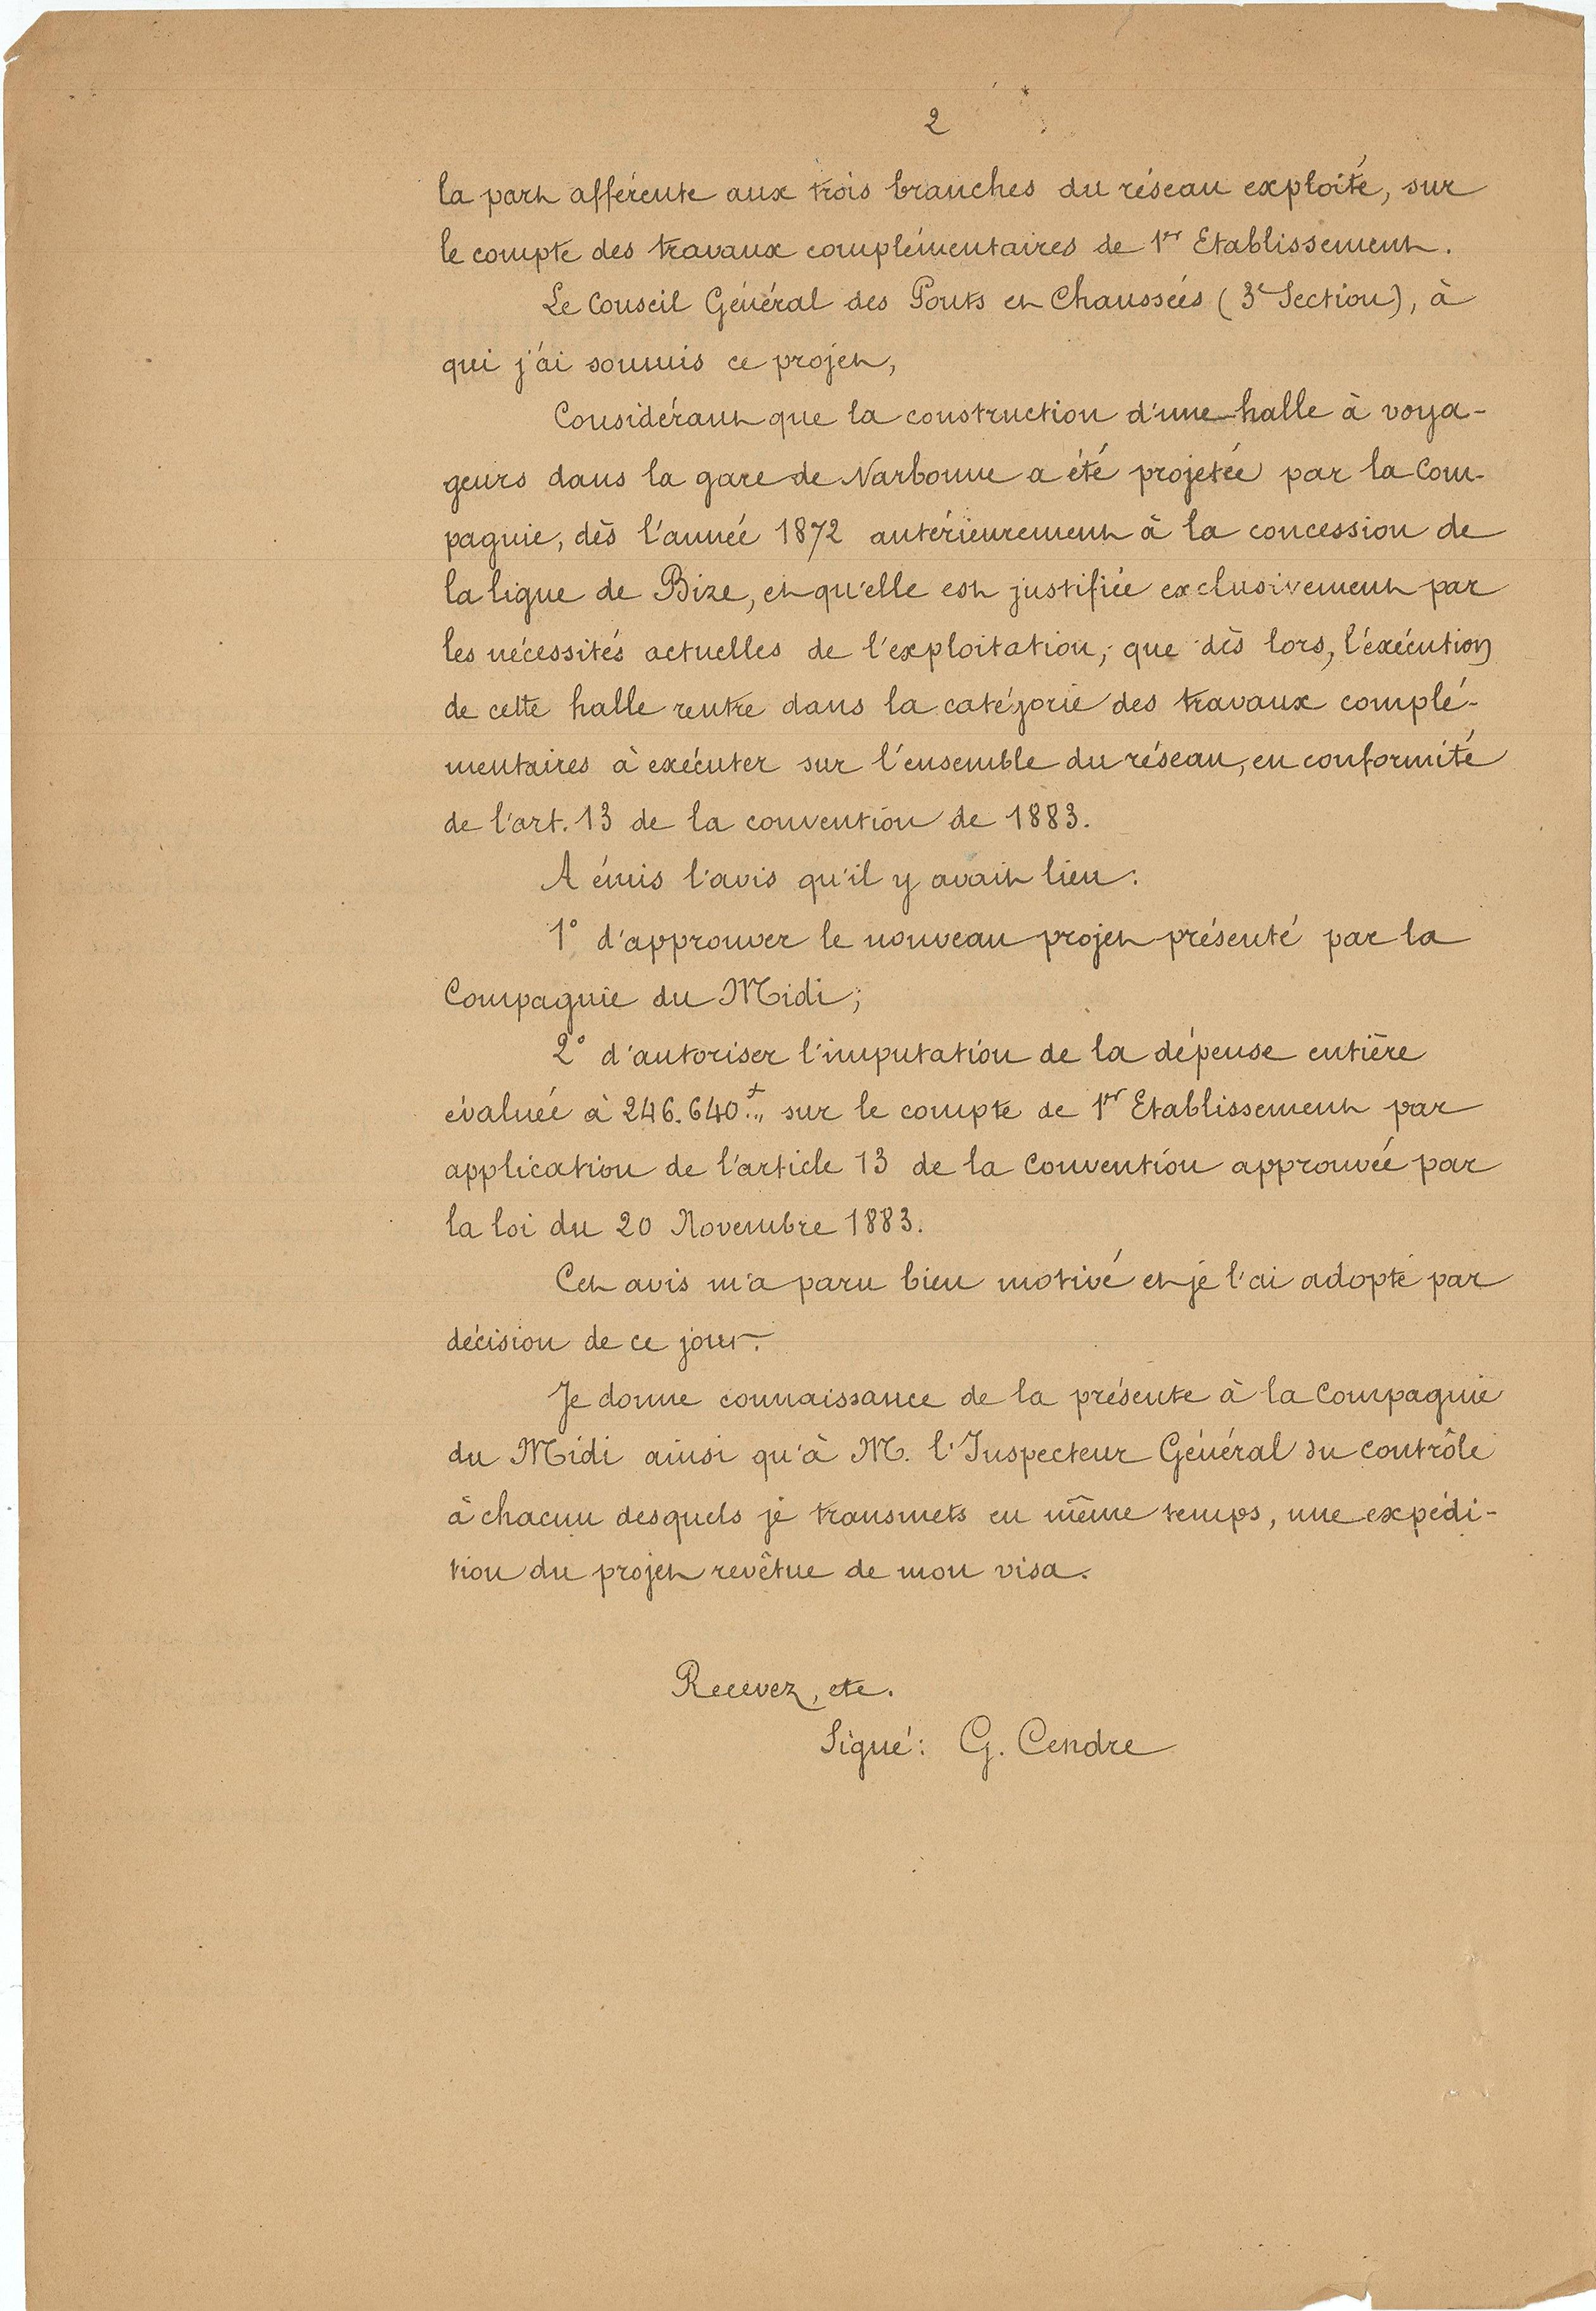 2
la part afférente aux trois branches du réseau exploité, sur
le compte des travaux complémentaires de 1er Etablissement.
Le Conseil Général des Ponts et Chaussées (3e Section), à
qui j'ai soumis ce projet,
Considérant que la construction d'une halle à voya-
geurs dans la gare de Narbonne a été projetée par la Com-
pagnie, dès l'année 1872 antérieurement à la concession de
la ligne de Bize, et qu'elle est justifiée exclusivement par
les nécessités actuelles de l'exploitation; que dès lors, l'éxécution
de cette halle rentre dans la catégorie des travaux complé-
mentaires à exécuter sur l'ensemble du réseau, en conformité
de l'art. 13 de la convention de 1883.
A émis l'avis qu'il y avait lieu:
1° d'approuver le nouveau projet présenté par la
Compagnie du Midi;
2° d'autoriser l'imputation de la dépense entière
évaluée à 246.640f.,, sur le compte de 1er Etablissement par
application de l'article 13 de la Convention approuvée par
la loi du 20 Novembre 1883.
Cet avis m'a paru bien motivé et je l'ai adopté par
décision de ce jour.
Je donne connaissance de la présente à la Compagnie
du Midi ainsi qu'à M. l'Inspecteur Général du contrôle
à chacun desquels je transmets en même temps, une expédi-
tion du projet revêtue de mon visa.
Recevez, etc.
Signé: G. Cendre